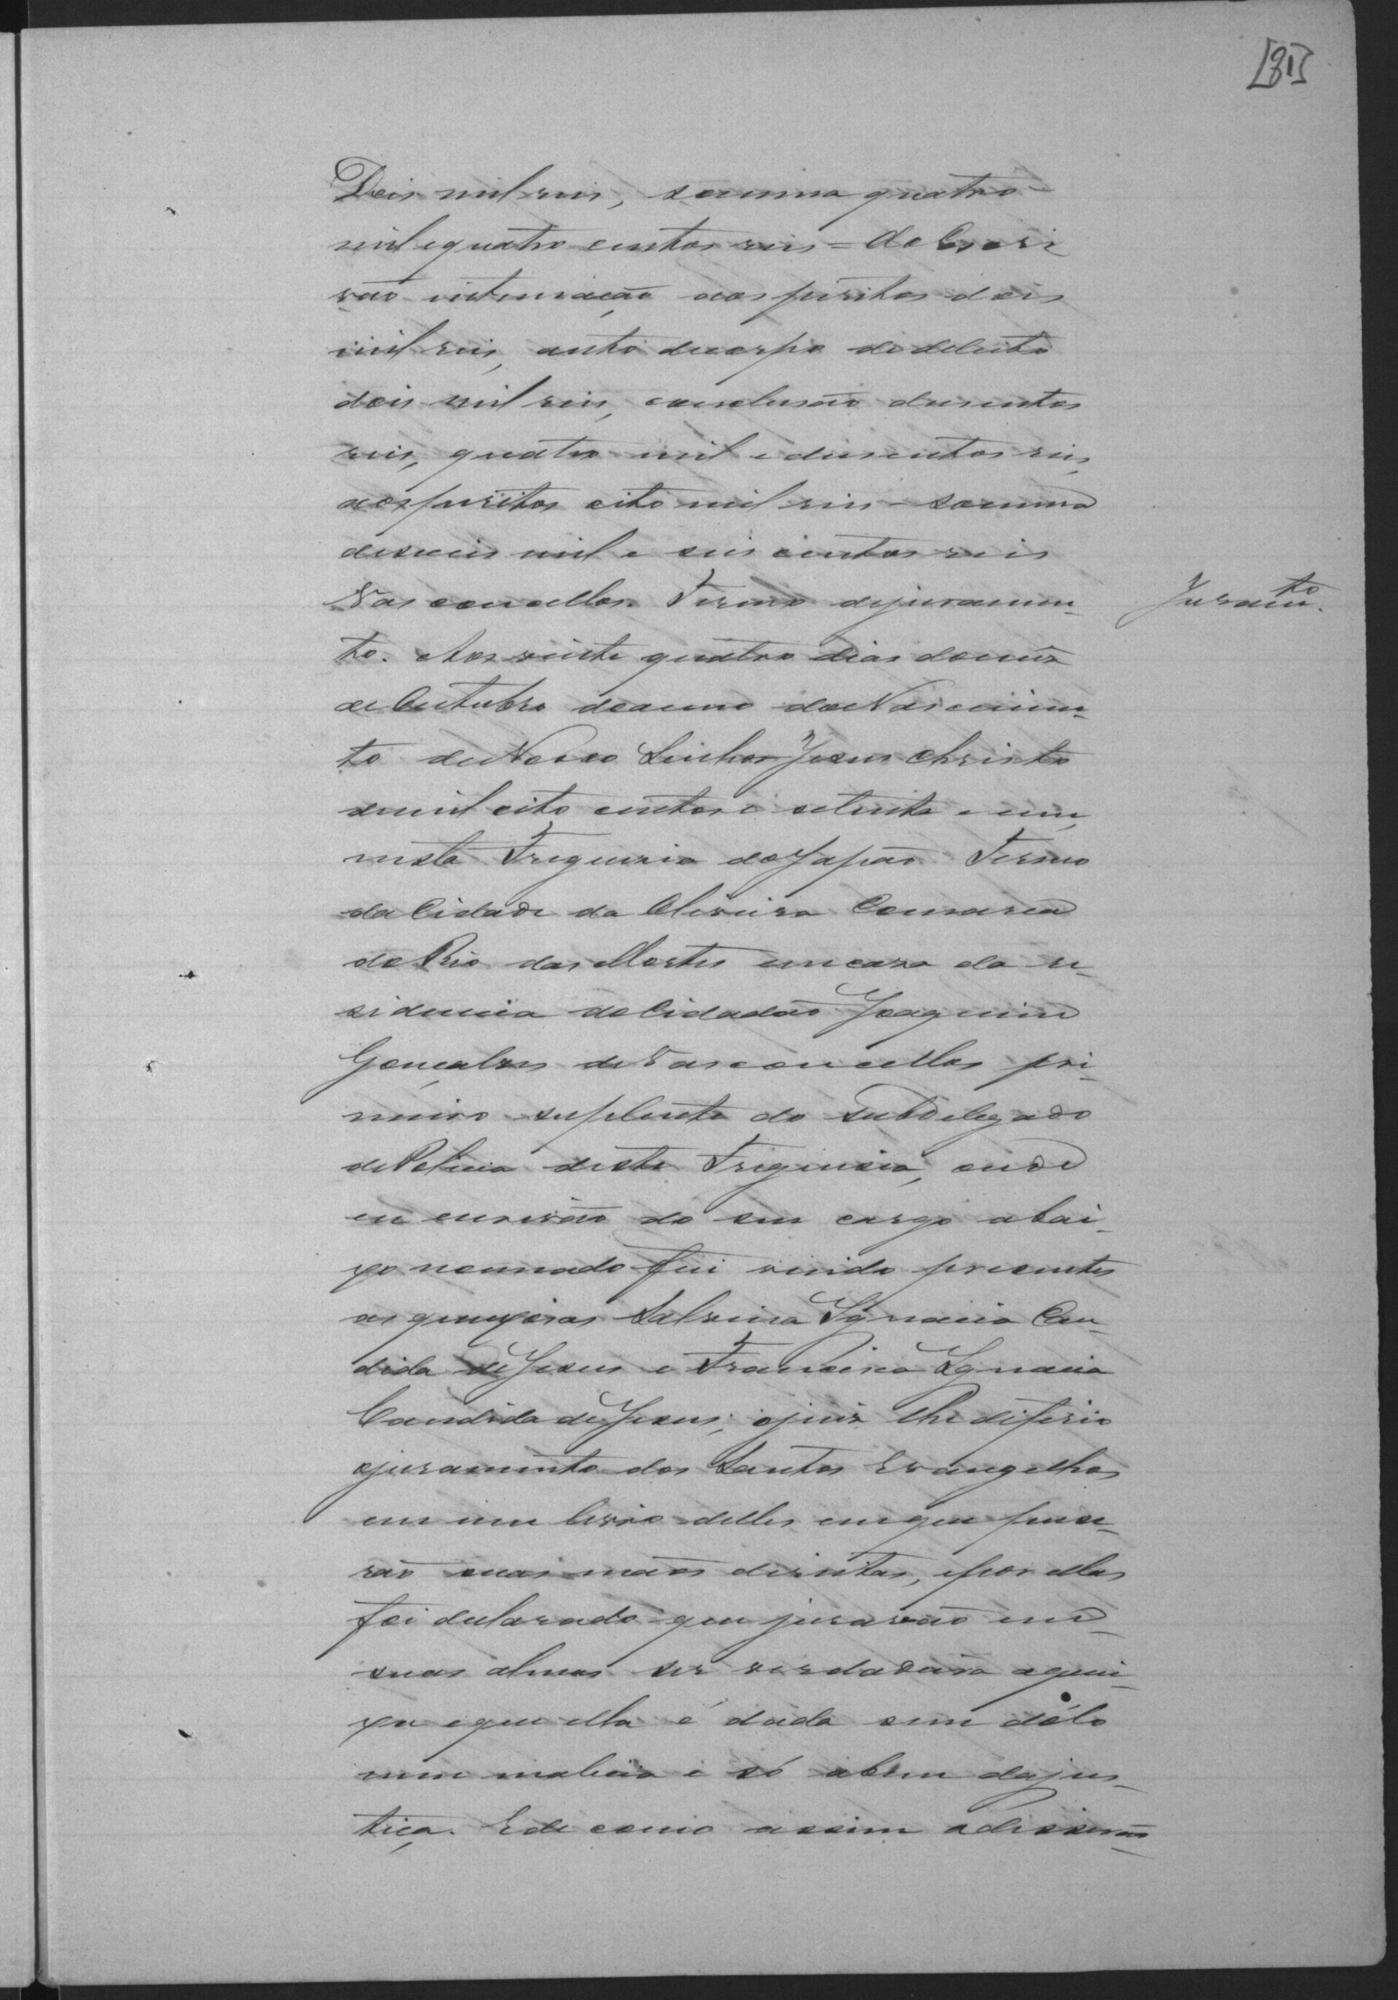 [81]
Dois mil reis, somma quatro
mil equatro centos reis = do Escri
vão intimação aos peritos dois
mil reis, auto decorpo dedelicto
dois mil reis, conclusão dusentos
reis, quatro mil e dusentos reis,
aosperitos oito mil reis - somma
deseseis mil e seis centos reis
Vasconcellos. Termo dejuramen-
Juram.to
to. Aos vinte quatro dias domez
de Outubro doanno doNascimen-
to deNosso Senhor Jesus Christo
demil oito centos e setenta e um,
nesta Freguesia doJapão Termo
da Cidade da Oliveira Comarca
do Rio das Mortes em casa da re-
sidencia do Cidadão Joaquim
Gonçalves de Vasconcellos pri-
meiro suplente do Subdelegado
dePolicia desta Freguesia, onde
eu escrivão do seu cargo abai-
xo nomeado fui vindo presentes
as queixosas Salvina Ignacia Can-
dida deJesus e Francisca Ignacia
Candida deJesus, ojuiz lhe diferio
ojuramento dos Santos Evangelhos
em um livro delles emque puse-
rão suas mãos direitas, epor ellas
foi declarado que juravão em
suas almas ser verdadeira aquei-
xa eque ella é dada sem dólo
nem malicia e só abem dajus-
tiça. Ede como assim adisserão